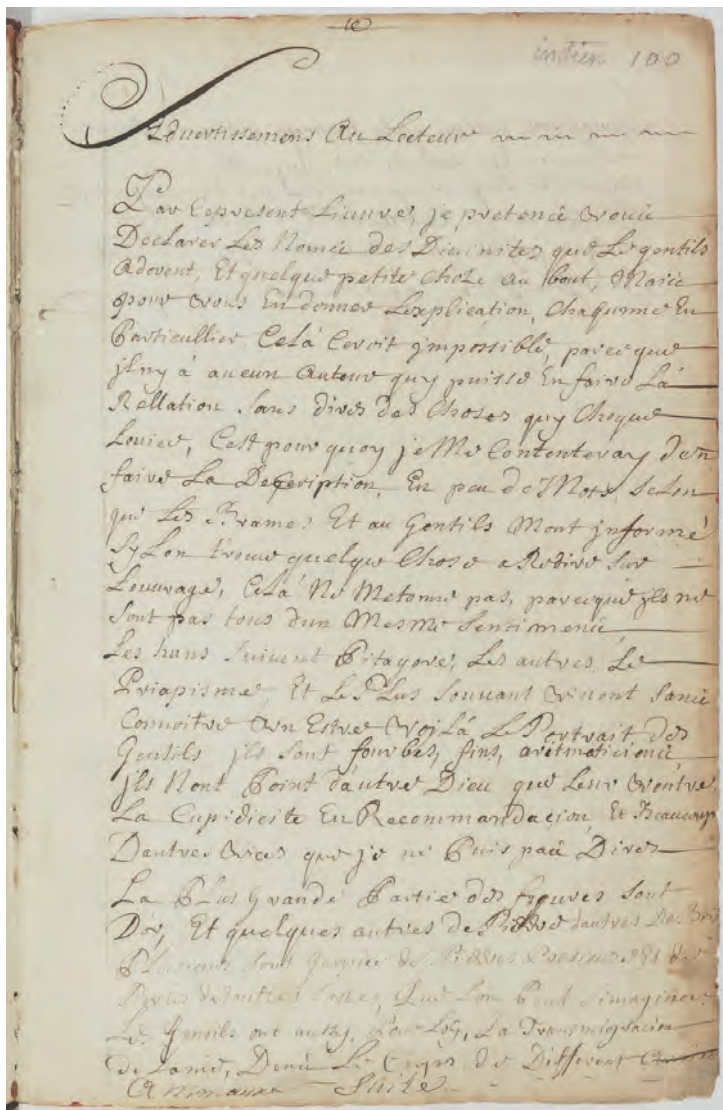 indien 100
Advertissemens Au Lecteur
Par Ce present Liuvre, je pretend vous
Declarer Les Noms des Divinites que Le gentils
Adorent, Et quelque petite Choze au bout, Mais
pour vous En donner Lexplication, Chaqunne En
Particullier Celà Ceroit jmpossible, parce que
jlny à aucun Auteur quy puisse En faire Là
Rellation Sans dires des Choses quy Choque
Louies, Cest pour quoy je Me Contenteray den
faire La Description, En peu de Mots, Selon
que Les Brames Et au Gentils Mont jnformé
Sy Lon trouve quelque Chose a Redire Sur
Louvrage, Celà Ne Metonne pas, parceque jls ne
Sont pas tous dun Mesme Sentimens
Les huns Suivent Pitagore, Les autres Le
Priapisme, Et Le Plus Souvant vivent Sans
Connoitre un Estre voilà Le Portrait des
Gentils jls Sont fourbes, fins, aritmeticiens
jls Nont Point dautre Dieu que Leur ventre
La Cupidicite En Recommandacion, Et Beaucoup
Dautres vices que je ne Puis pas Dires
La Plus Grande Partie des figures Sont
Dor, Et quelques autres de Pierre dautres De Bois
Plusieurs Sont Garnies de Pierres Presieuses Et de
toutes Sortes, Que Lon Peut Simaginer
Les Gentils ont aussy, Pour Loy, La Transmigracion
de Lame, Dans Le Corps de Different
Animaux Suite